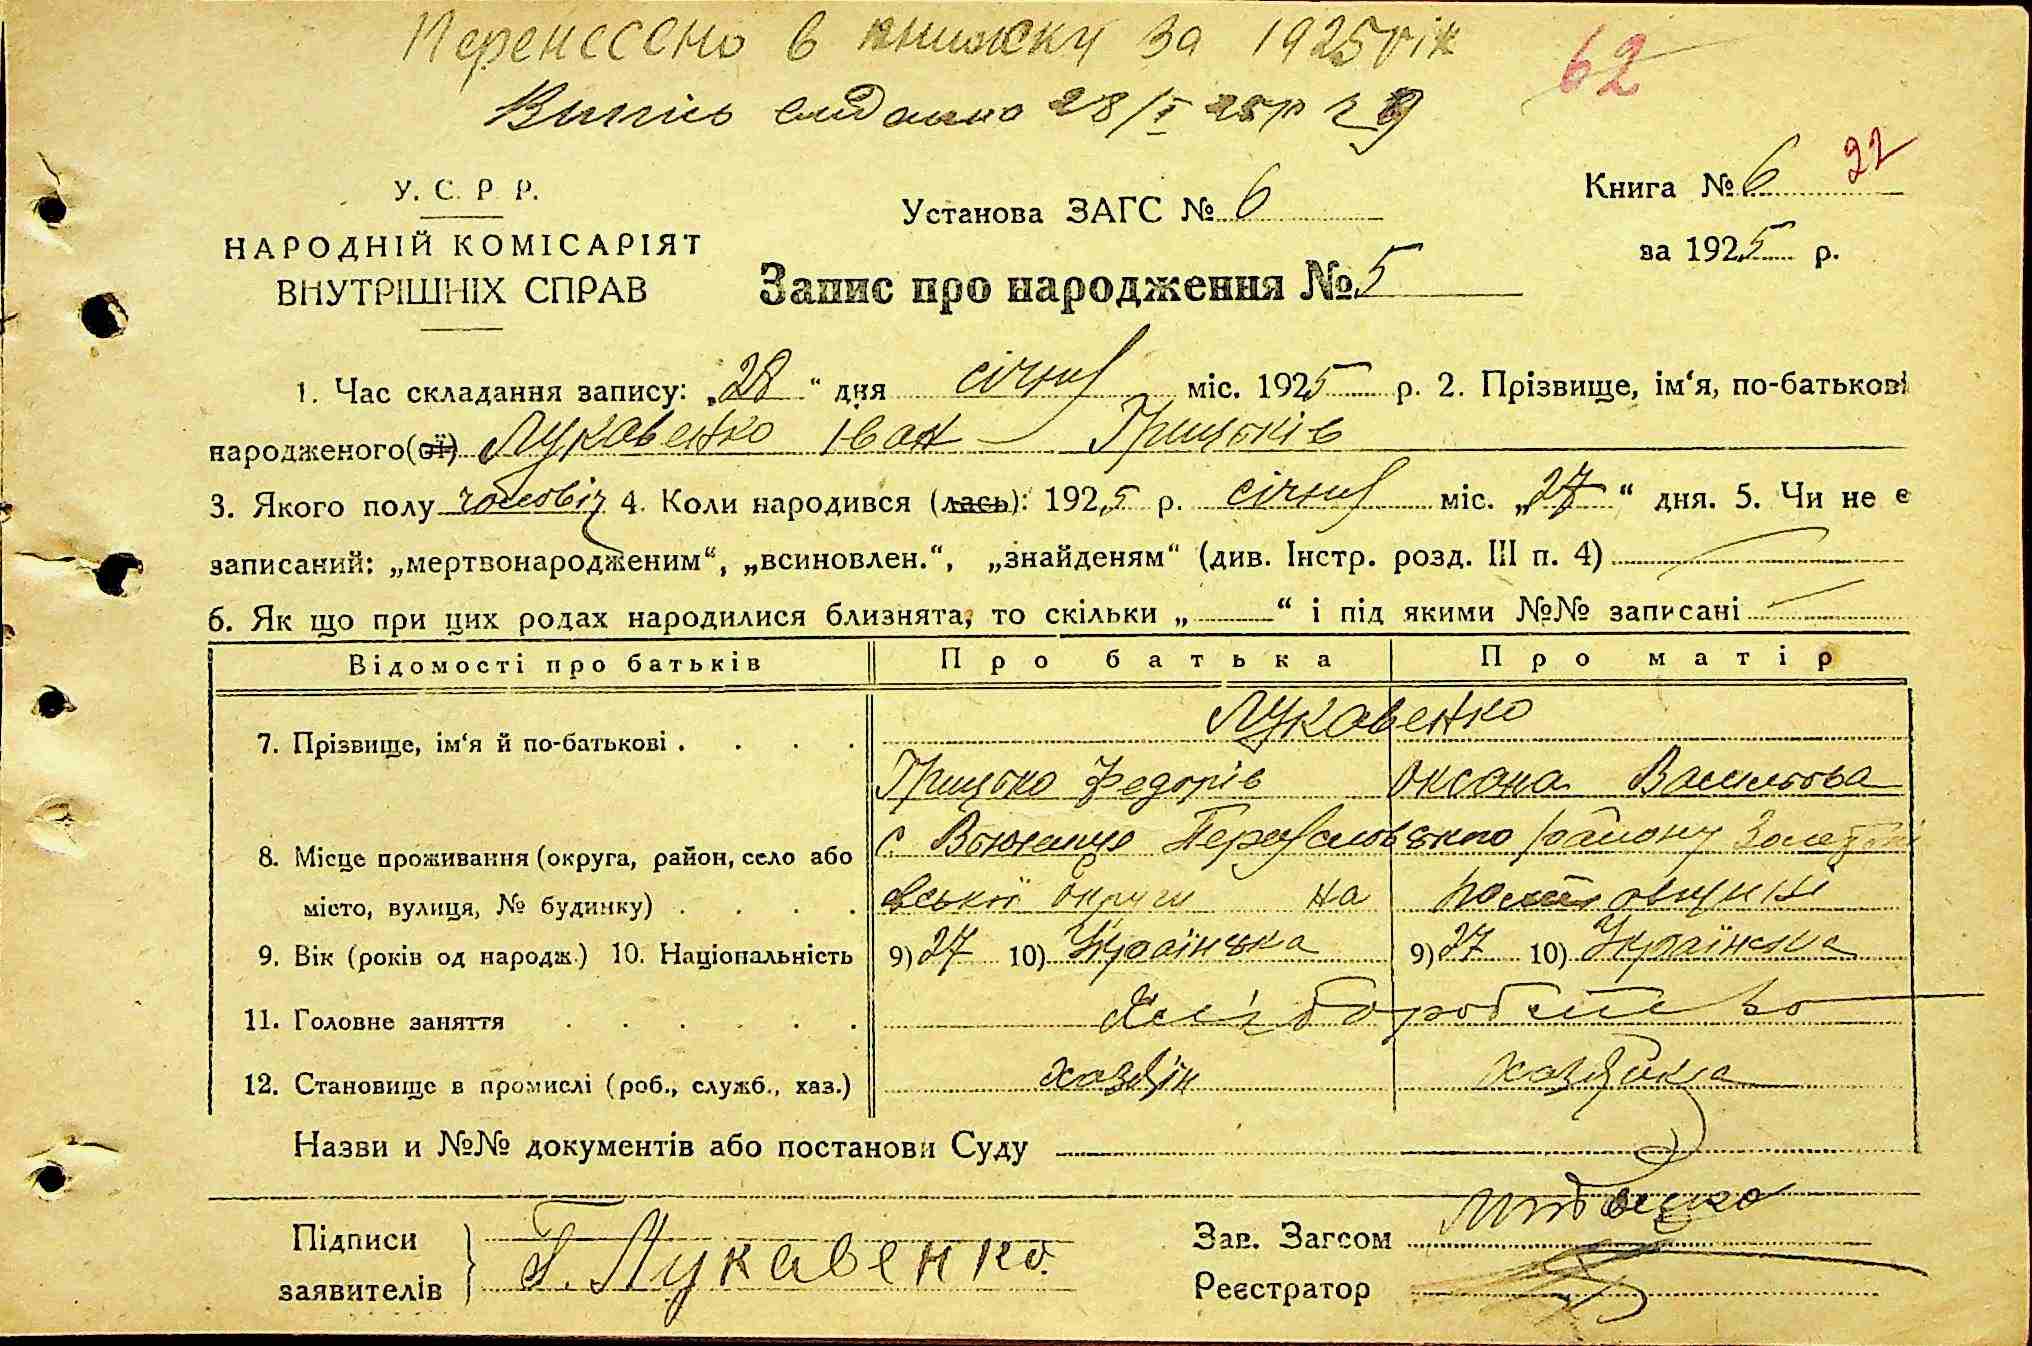 Перенесено в книжку за 1925 рік
62
Випись видано 28/I 25 р
У. С. Р. Р.
НАРОДНІЙ КОМІСАРІЯТ
ВНУТРІШНІХ СПРАВ
Установа ЗАГС № 6
Книга № 6 22
за 1925 р.
Запис про народження № 5
1. Час складання запису: „28“ дня січня міс. 1925 р. 2. Прізвище, ім‘я, по-батькові
народженого(ої) Лукавенко Іван Грицьків
3. Якого полу чоловіч 4. Коли народився (лась): 1925 р. січня міс. „27“ дня. 5. Чи не є
записаний: „мертвонародженим“, „всиновлен.“, „знайденям“ (див. Інстр. розд. III п. 4)
6. Як що при цих родах народилися близнята, то скільки „ “ і під якими №№ записані
Відомості про батьків Про батька Про матір
7. Прізвище, ім‘я й по-батькові . . . . Лукавенко
Грицько Федорів Оксана Васильова
8. Місце проживання (округа, район, село або с. Вюнище Переяславського району
місто, вулиця, № будинку) . . . . вської округи на
9. Вік (років од народж.) 10. Національність 9) 27 10) Українська 9) 27 10) Українська
11. Головне заняття . . . . . . Хліборобство
12. Становище в промислі (роб., служб., хаз.) хазяїн хазяйка
Назви и №№ документів або постанови Суду
Підписи
заявителів Г. Лукавенко.
Зав. Загсом
Реєстратор